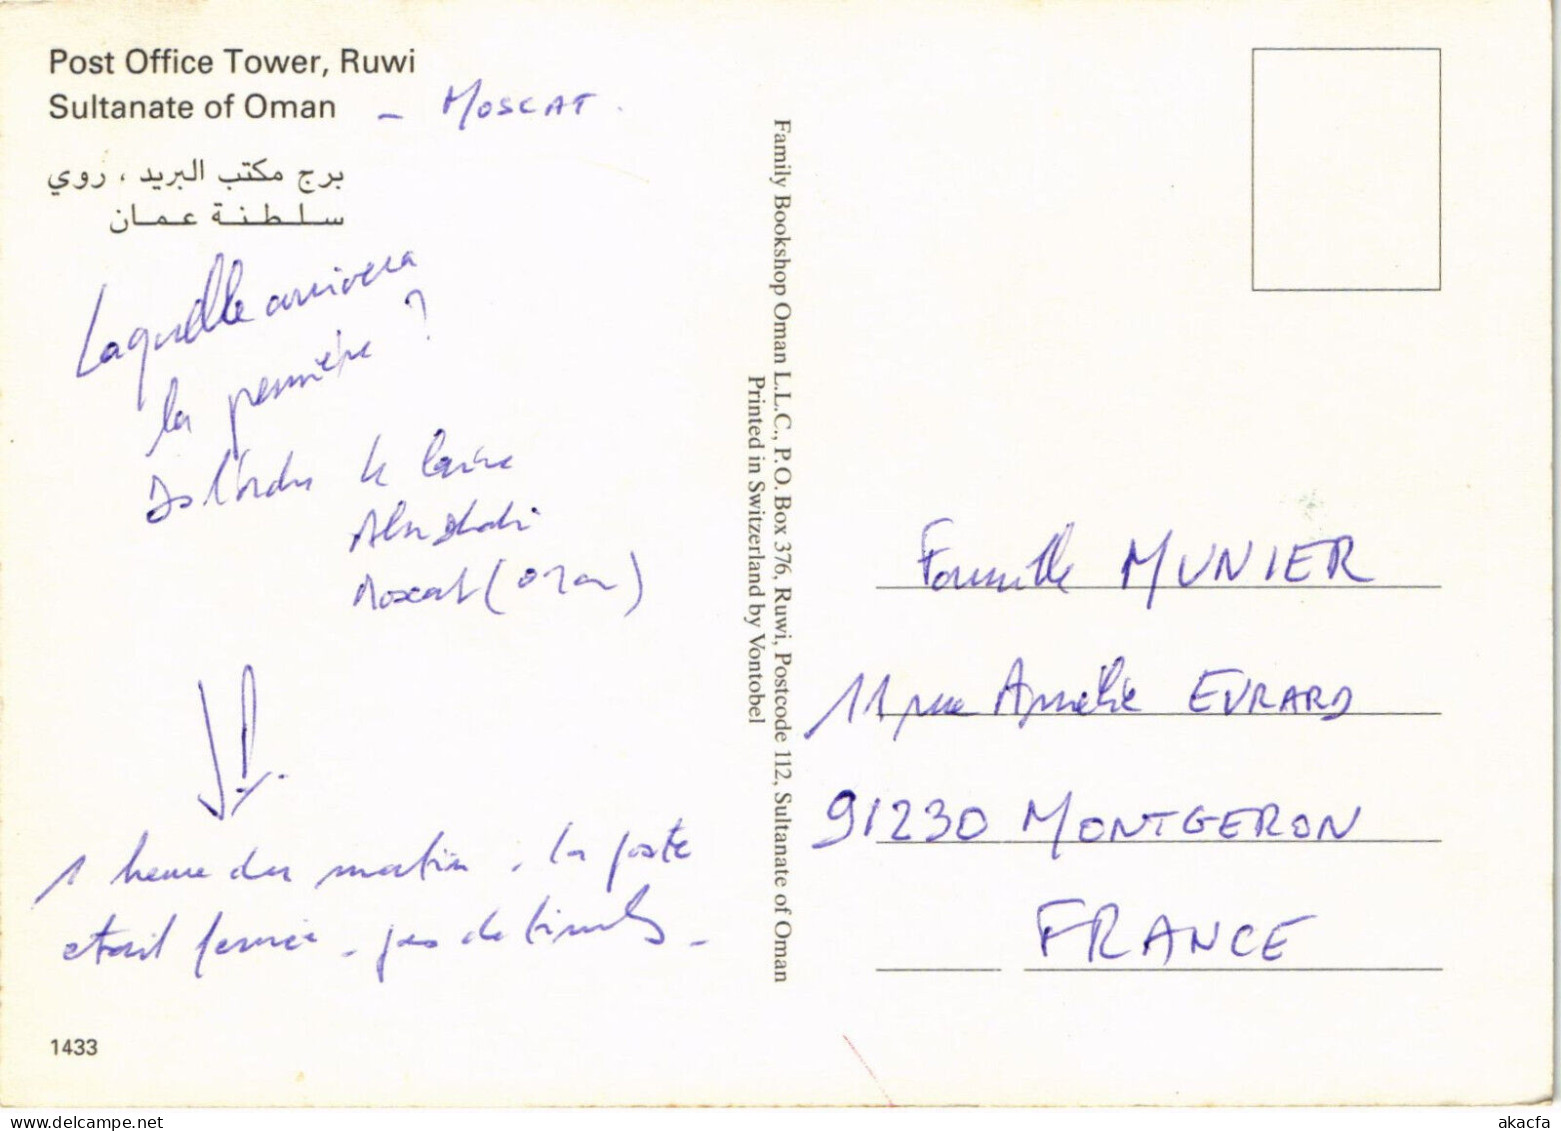 Post Office Tower, Ruwi
Sultanate of Oman - MOSCAT.
برج مكتب البريد ، روي
سلطنة عمان
Laquelle arrivera
la première ?
Ds l'ordre le Caire
Abu Dhabi
Moscat (Oman)
1 heure du matin, la poste
etait fermée - pas de timbres -
1433
Family Bookshop Oman L.L.C., P.O. Box 376, Ruwi, Postcode 112, Sultanate of Oman
Printed in Switzerland by Vontobel
Famille MUNIER
11 rue Amélie EVRARD
91230 MONTGERON
FRANCE
akacfa